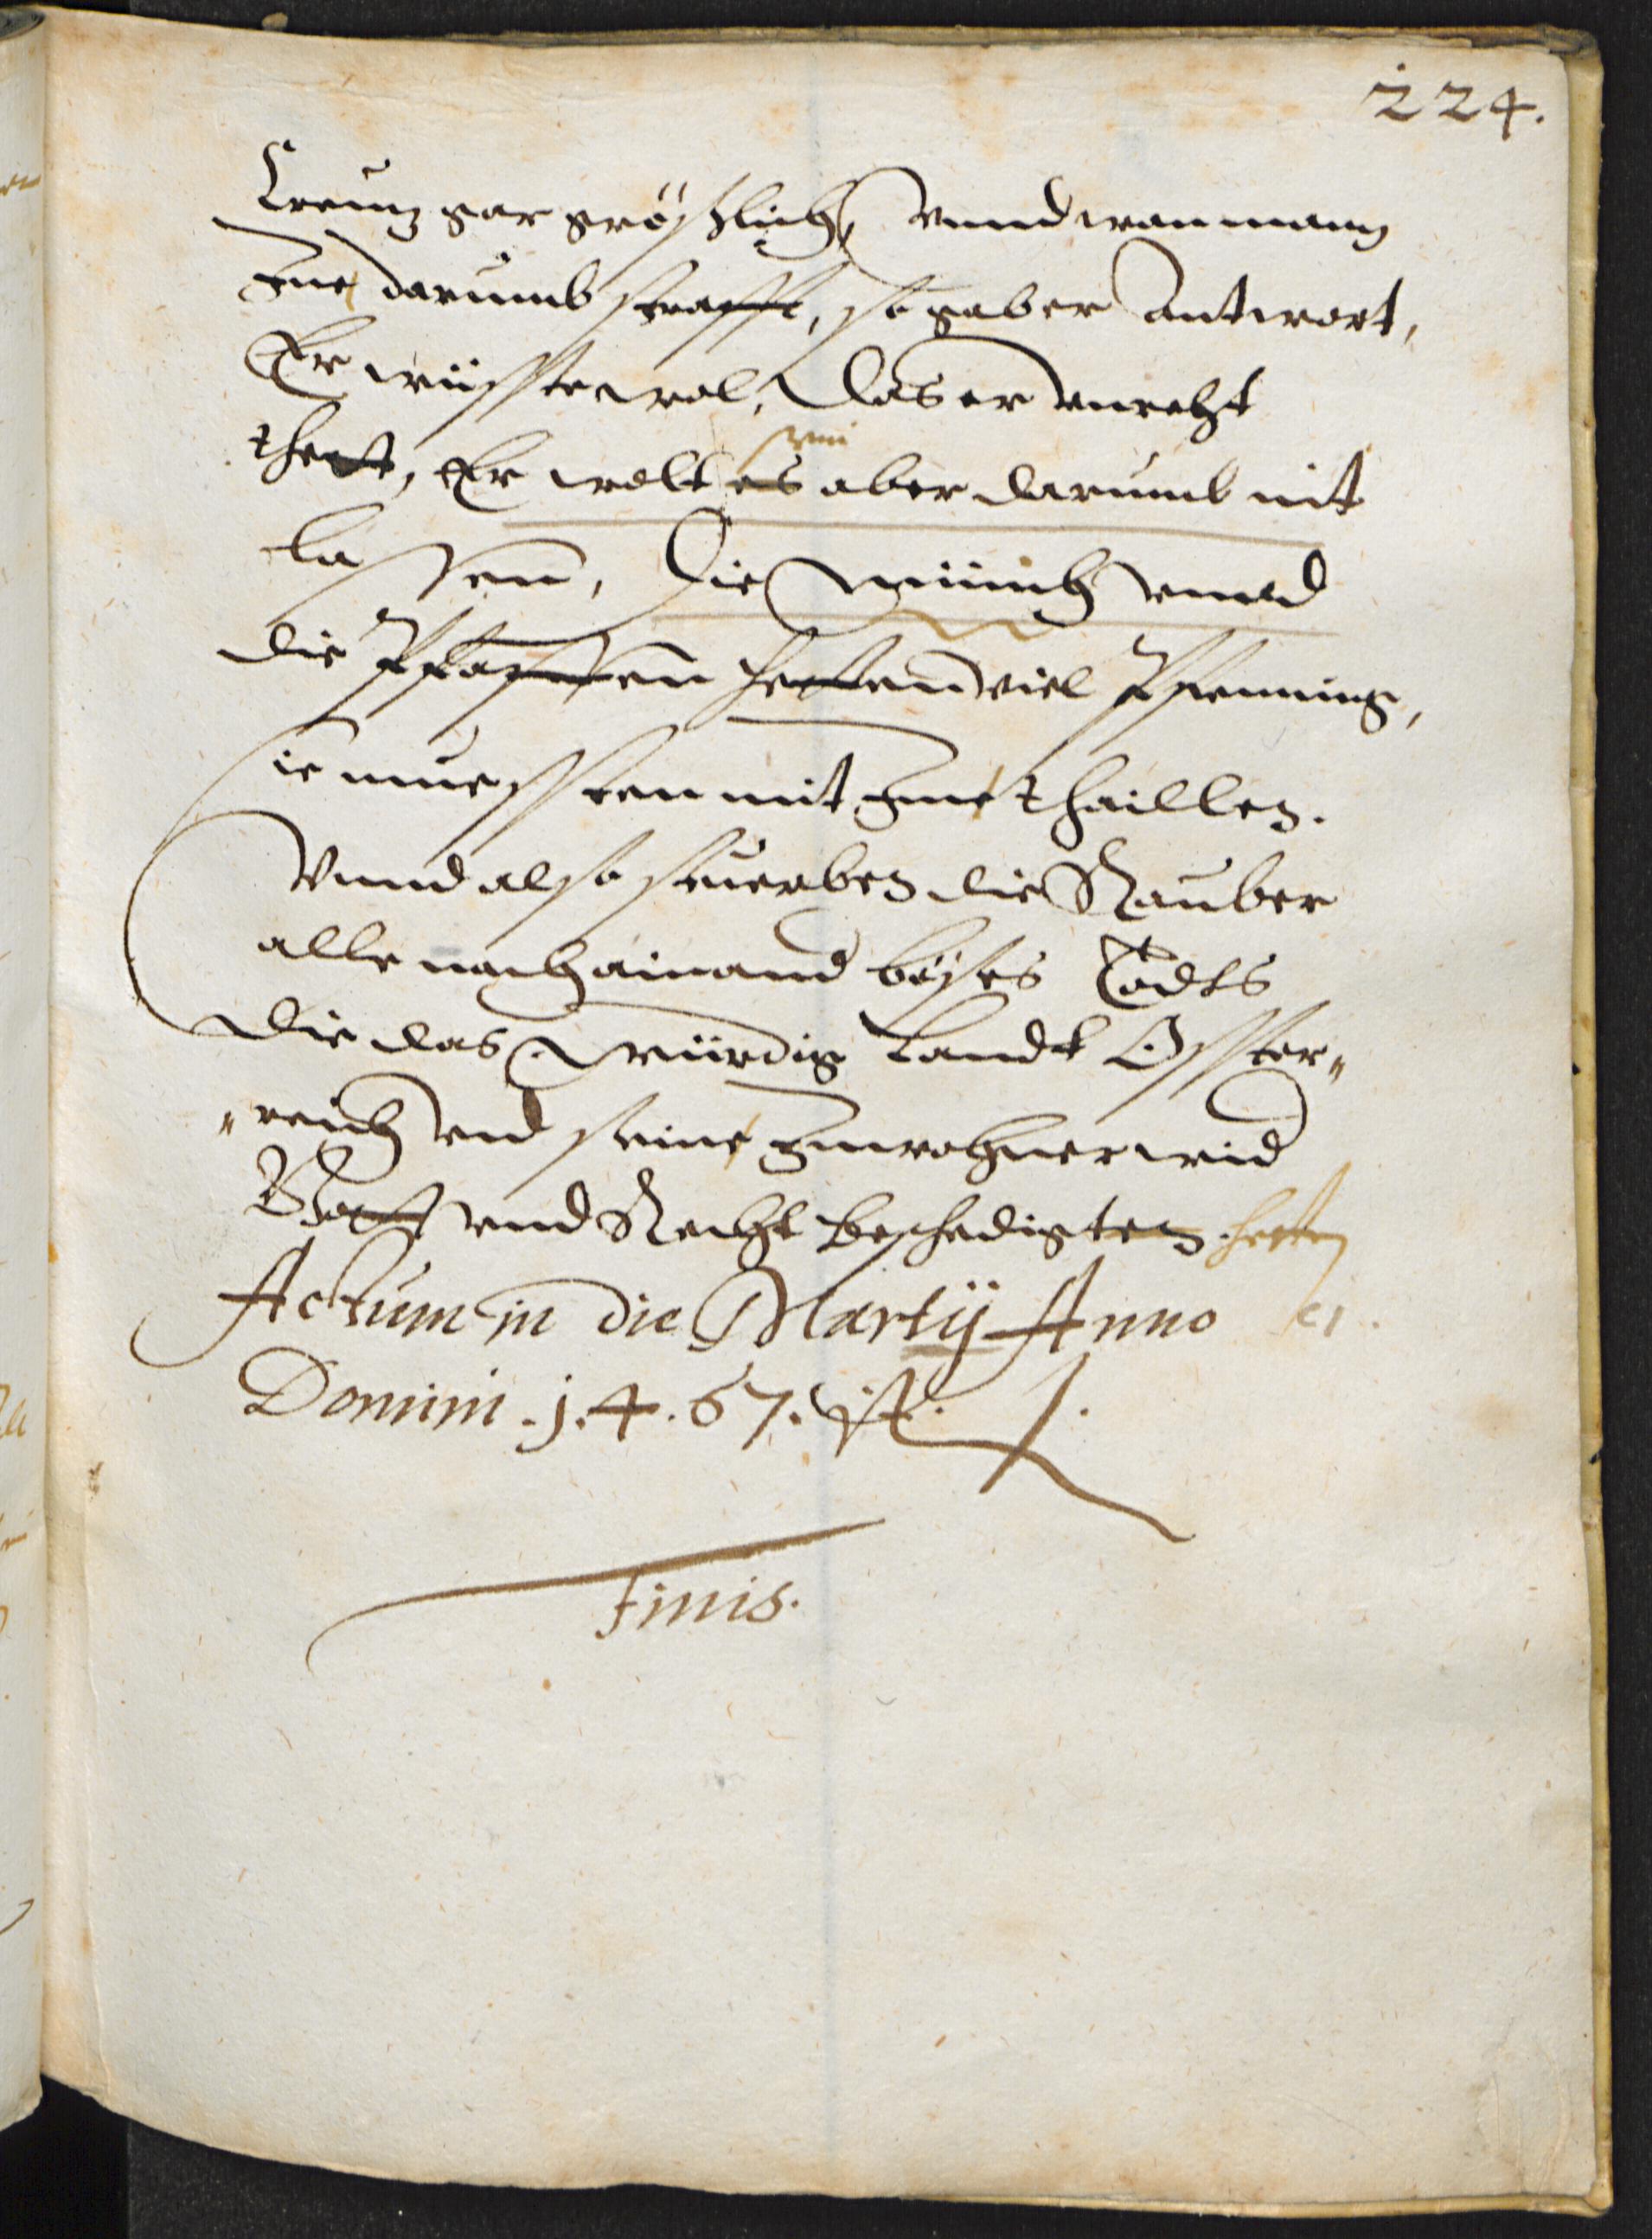 224.
Creuz gar größlich, vnnd wan mann
Ine darumb strafft, so gab er Antwort,
Er wüsste wol, das er vnrecht
thett, Er wolt es aber darumb nit
lassenn, Die Münch vnnd
die Pfaffenn hettenn viel Pfenning,
sie muessten mit Ime thaillen.
Vnnd also stuerben die Rauber
alle nach ainand böses Todts
die das würdig Landt Osster„
„reich vnd seine Innwohner wid
Gott vnd Recht beschedigten. hetten
Actum in die Martij Anno
Domini .j.4.67. ist.
finis.